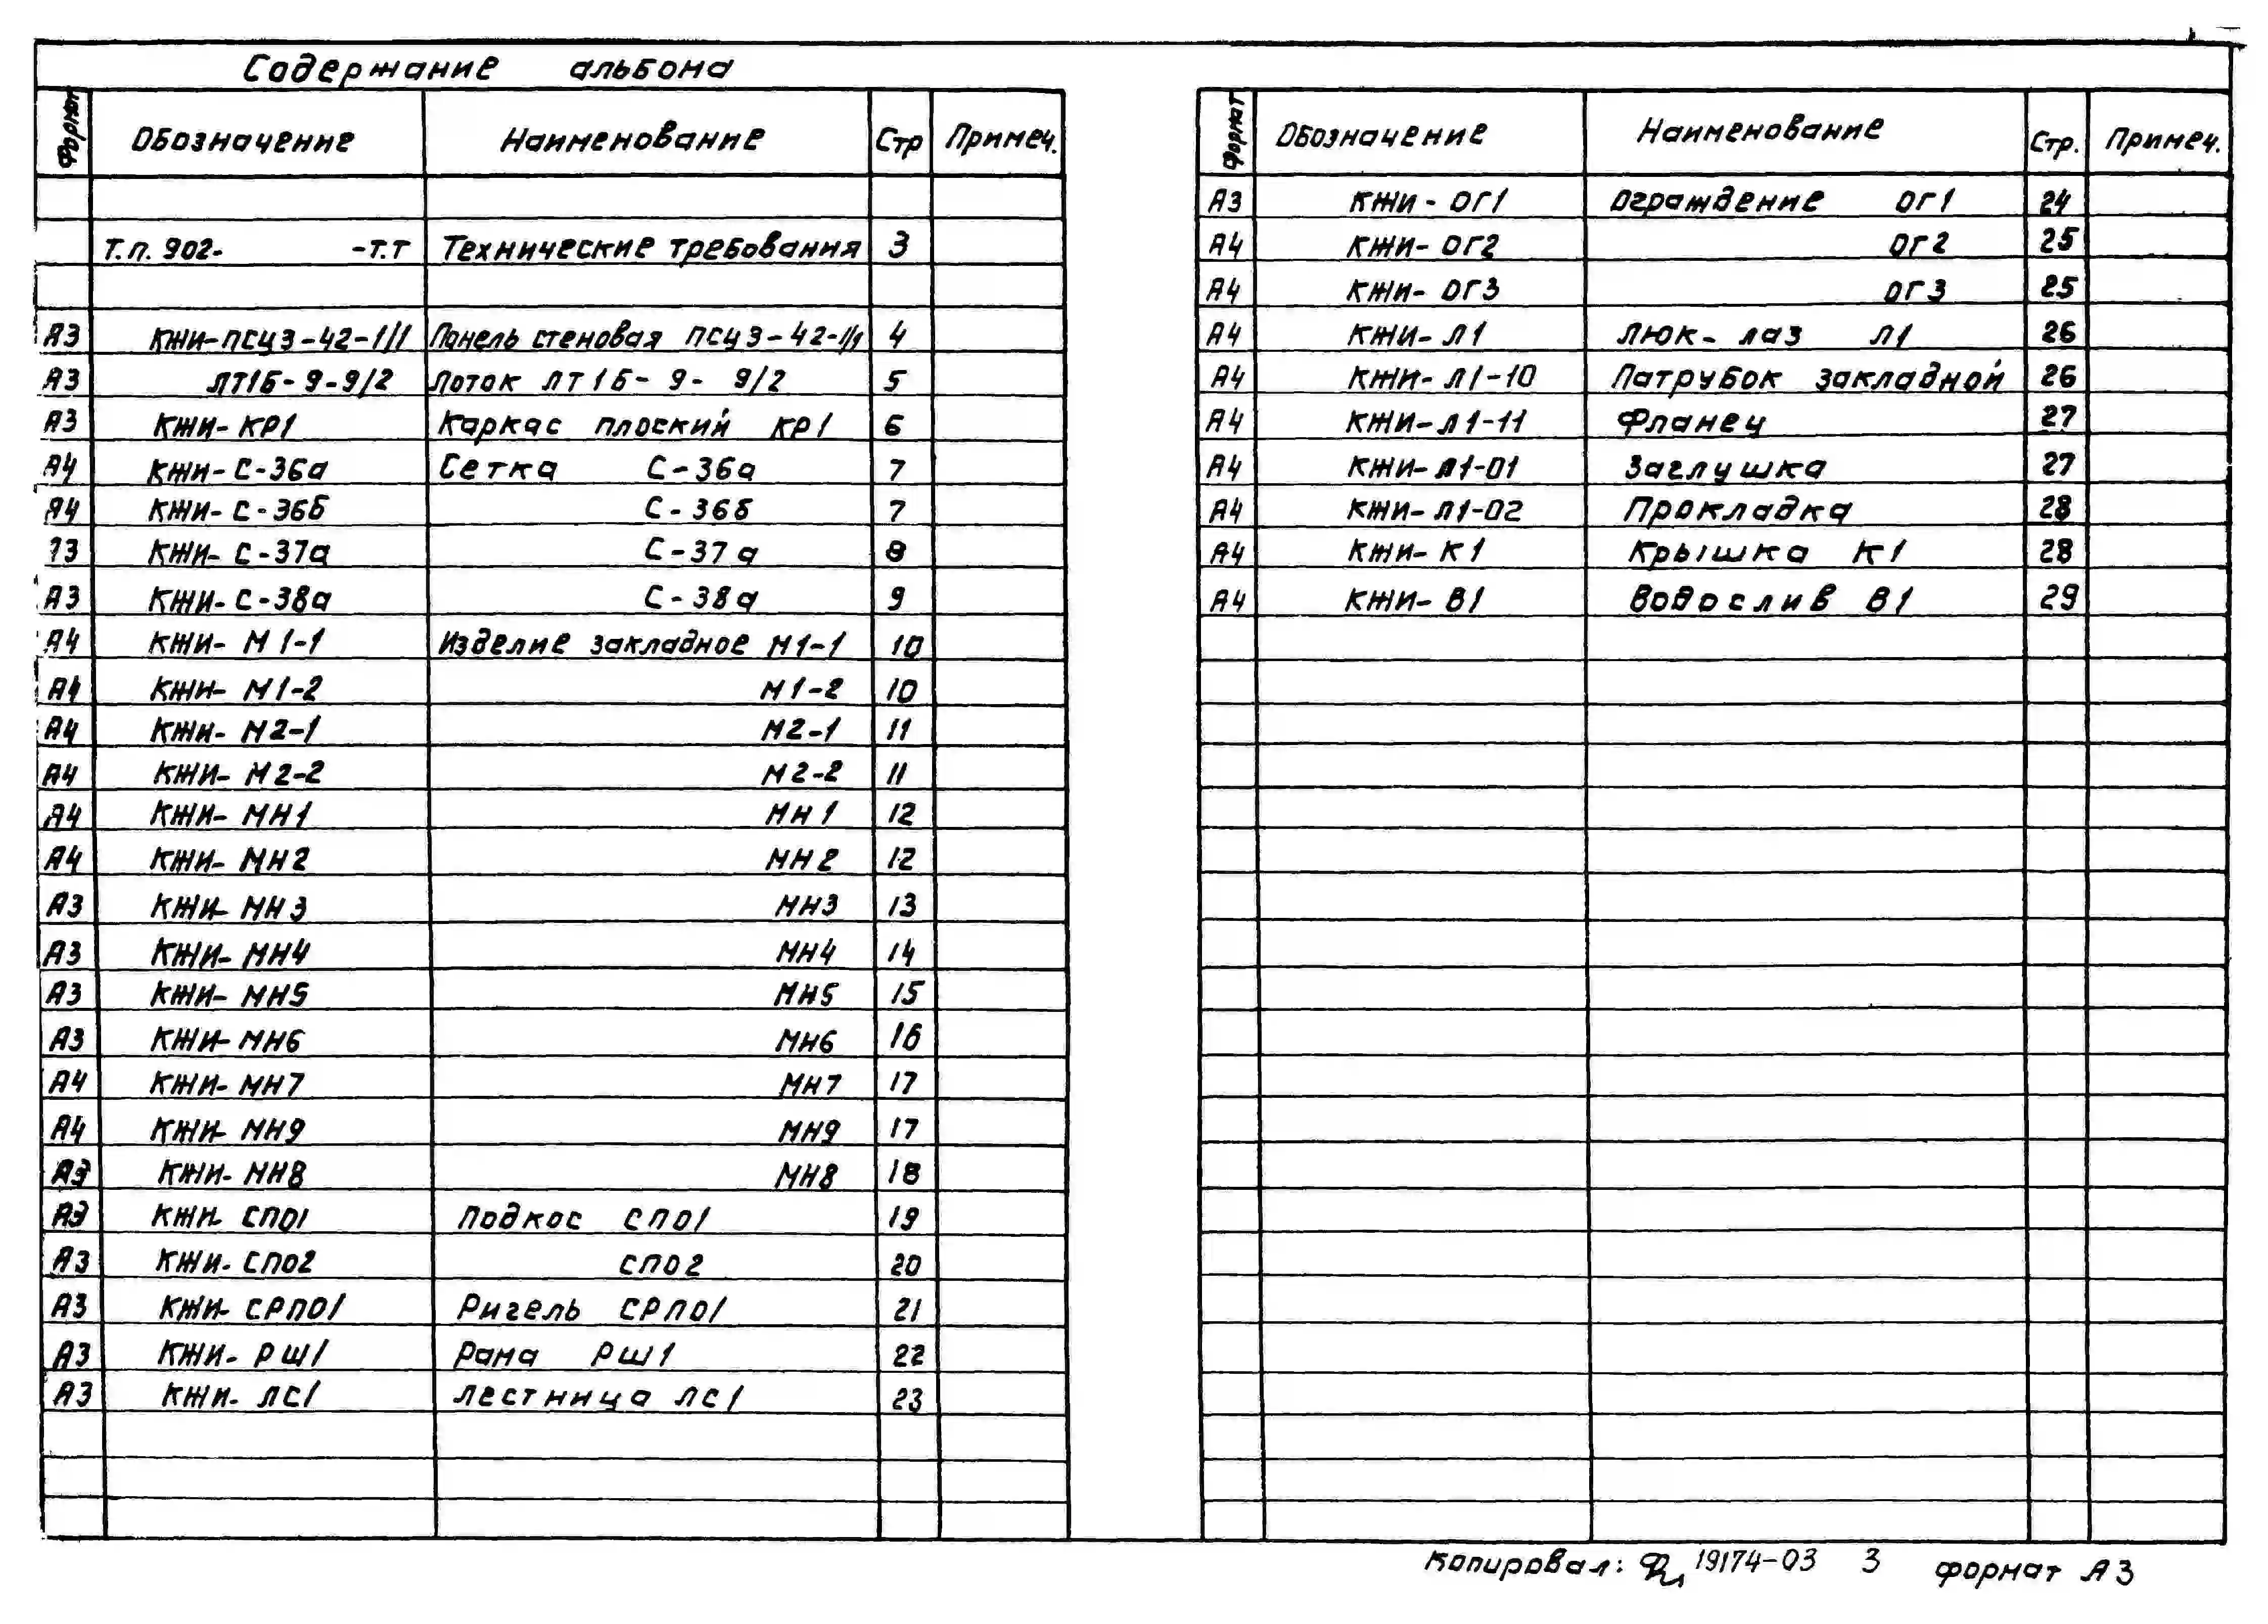 Содержание альбома
Формат Обозначение Наименование Стр Примеч.
Т.п. 902- -Т.Т Технические требования 3
А3 КЖИ-ПСЦ3-42-1/1 Панель стеновая ПСЦ3-42-1/1 4
А3 ЛТ1Б-9-9/2 Лоток ЛТ1Б-9-9/2 5
А3 КЖИ-КР1 Каркас плоский КР1 6
А4 КЖИ-С-36а Сетка С-36а 7
А4 КЖИ-С-36б С-36б 7
КЖИ-С-37а С-37а 8
А3 КЖИ-С-38а С-38а 9
А4 КЖИ-М1-1 Изделие закладное М1-1 10
А4 КЖИ-М1-2 М1-2 10
А4 КЖИ-М2-1 М2-1 11
А4 КЖИ-М2-2 М2-2 11
А4 КЖИ-МН1 МН1 12
А4 КЖИ-МН2 МН2 12
А3 КЖИ-МН3 МН3 13
А3 КЖИ-МН4 МН4 14
А3 КЖИ-МН5 МН5 15
А3 КЖИ-МН6 МН6 16
А4 КЖИ-МН7 МН7 17
А4 КЖИ-МН9 МН9 17
А3 КЖИ-МН8 МН8 18
А3 КЖИ-СП01 Подкос СП01 19
А3 КЖИ-СП02 СП02 20
А3 КЖИ-СРП01 Ригель СРП01 21
А3 КЖИ-РШ1 Рама РШ1 22
А3 КЖИ-ЛС1 Лестница ЛС1 23
Формат Обозначение Наименование Стр. Примеч.
А3 КЖИ-ОГ1 Ограждение ОГ1 24
А4 КЖИ-ОГ2 ОГ2 25
А4 КЖИ-ОГ3 ОГ3 25
А4 КЖИ-Л1 Люк-лаз Л1 26
А4 КЖИ-Л1-10 Патрубок закладной 26
А4 КЖИ-Л1-11 Фланец 27
А4 КЖИ-Л1-01 Заглушка 27
А4 КЖИ-Л1-02 Прокладка 28
А4 КЖИ-К1 Крышка К1 28
А4 КЖИ-В1 Водослив В1 29
Копировал: 19174-03 3 формат А3